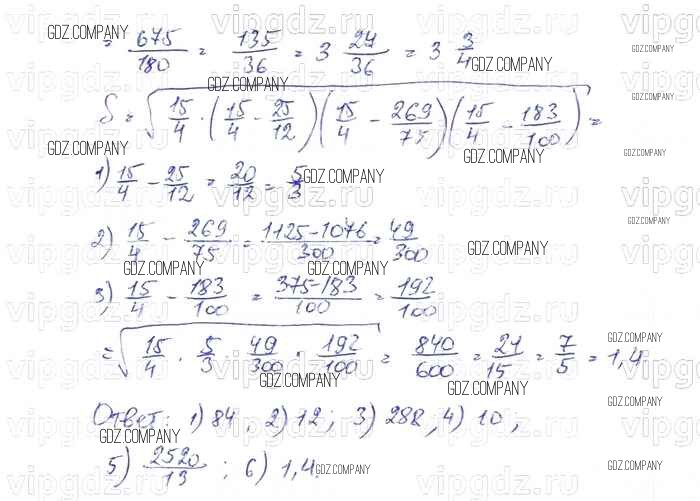 = 675/180 = 135/36 = 3 27/36 = 3 3/4
S = √(15/4 · (15/4 - 25/12)(15/4 - 269/75)(15/4 - 183/100)) =
1) 15/4 - 25/12 = 20/12 = 5/3
2) 15/4 - 269/75 = 1125-1076/300 = 49/300
3) 15/4 - 183/100 = 375-183/100 = 192/100
= √(15/4 · 5/3 · 49/300 · 192/100) = 840/600 = 21/15 = 7/5 = 1,4
Ответ: 1) 84, 2) 12; 3) 288, 4) 10;
5) 2520/13; 6) 1,4.
GDZ.COMPANY
vipgdz.ru